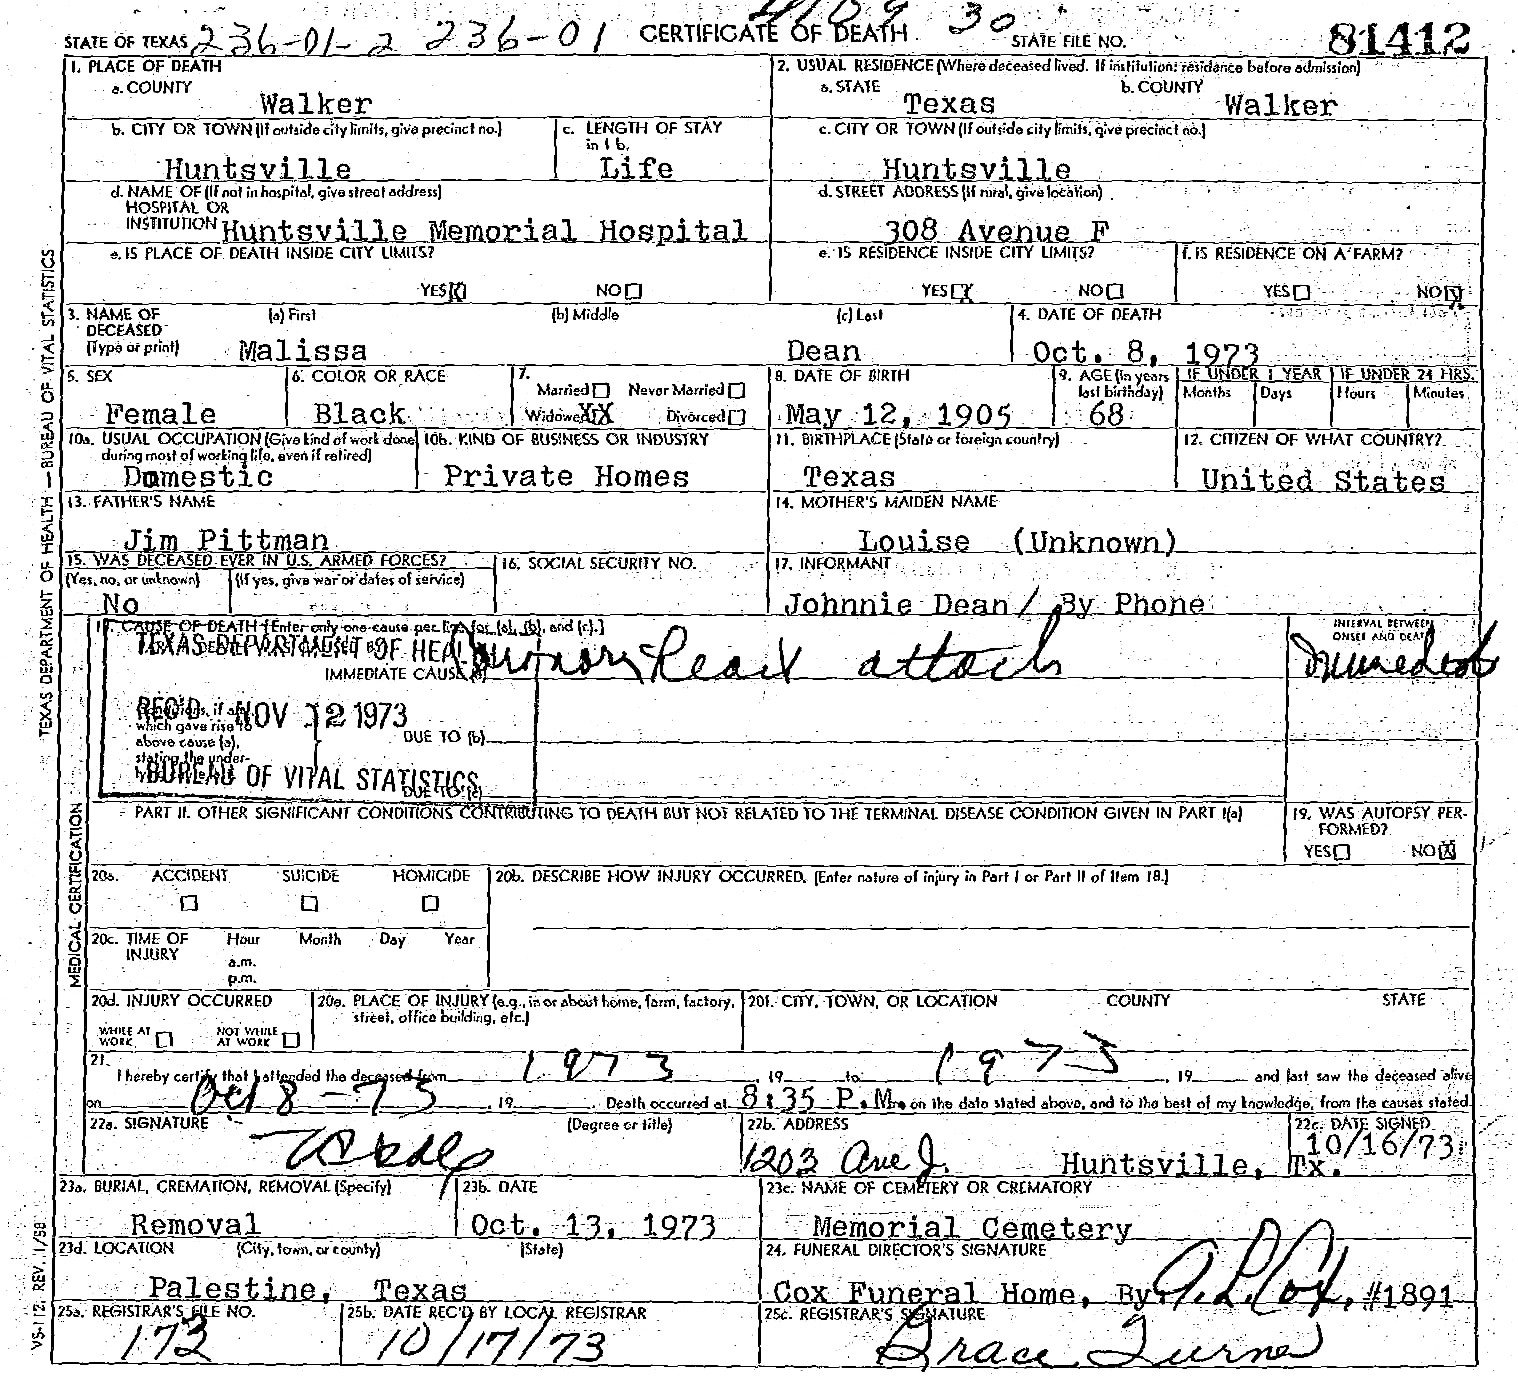 STATE OF TEXAS 236-01-2 236-01 CERTIFICATE OF DEATH 30 STATE FILE NO. 81412
1. PLACE OF DEATH
a. COUNTY
Walker
2. USUAL RESIDENCE (Where deceased lived. If institution: residence before admission)
a. STATE
Texas
b. COUNTY
Walker
b. CITY OR TOWN (If outside city limits, give precinct no.)
Huntsville
c. LENGTH OF STAY
in 1 b.
Life
c. CITY OR TOWN (If outside city limits, give precinct no.)
Huntsville
d. NAME OF (If not in hospital, give street address)
HOSPITAL OR
INSTITUTION Huntsville Memorial Hospital
d. STREET ADDRESS (If rural, give location)
308 Avenue F
e. IS PLACE OF DEATH INSIDE CITY LIMITS?
YES X NO
e. IS RESIDENCE INSIDE CITY LIMITS?
YES X NO
f. IS RESIDENCE ON A FARM?
YES NO X
3. NAME OF
DECEASED
(Type or print)
(a) First
Malissa
(b) Middle
(c) Last
Dean
4. DATE OF DEATH
Oct. 8, 1973
5. SEX
Female
6. COLOR OR RACE
Black
7.
Married Never Married
Widowed XX Divorced
8. DATE OF BIRTH
May 12, 1905
9. AGE (In years
last birthday)
68
IF UNDER 1 YEAR
Months Days
IF UNDER 24 HRS.
Hours Minutes
10a. USUAL OCCUPATION (Give kind of work done
during most of working life, even if retired)
Domestic
10b. KIND OF BUSINESS OR INDUSTRY
Private Homes
11. BIRTHPLACE (State or foreign country)
Texas
12. CITIZEN OF WHAT COUNTRY?
United States
13. FATHER'S NAME
Jim Pittman
14. MOTHER'S MAIDEN NAME
Louise (Unknown)
15. WAS DECEASED EVER IN U.S. ARMED FORCES?
(Yes, no, or unknown) (If yes, give war or dates of service)
No
16. SOCIAL SECURITY NO.
17. INFORMANT
Johnnie Dean / By Phone
CAUSE OF DEATH [Enter only one cause per line for (a), (b), and (c).]
TEXAS DEPARTMENT OF HEAL
IMMEDIATE CAUSE (a) Coronary Heart attack
INTERVAL BETWEEN
ONSET AND DEATH
Immediate
REC'D NOV 12 1973
Conditions, if any,
which gave rise to
above cause (a),
stating the under-
DUE TO (b)
BUREAU OF VITAL STATISTICS
DUE TO (c)
PART II. OTHER SIGNIFICANT CONDITIONS CONTRIBUTING TO DEATH BUT NOT RELATED TO THE TERMINAL DISEASE CONDITION GIVEN IN PART I(a)
19. WAS AUTOPSY PER-
FORMED?
YES NO X
20a. ACCIDENT SUICIDE HOMICIDE
20b. DESCRIBE HOW INJURY OCCURRED. (Enter nature of injury in Part I or Part II of Item 18.)
20c. TIME OF
INJURY
Hour Month Day Year
a.m.
p.m.
20d. INJURY OCCURRED
WHILE AT
WORK
NOT WHILE
AT WORK
20e. PLACE OF INJURY (e.g., in or about home, farm, factory,
street, office building, etc.)
20f. CITY, TOWN, OR LOCATION COUNTY STATE
21.
I hereby certify that I attended the deceased from 1973, 19 to 1973, 19 and last saw the deceased alive
on Oct 8-73, 19 . Death occurred at 8:35 P.M. on the date stated above, and to the best of my knowledge, from the causes stated.
22a. SIGNATURE (Degree or title)
22b. ADDRESS
1203 Ave J. Huntsville, Tx.
22c. DATE SIGNED
10/16/73
23a. BURIAL, CREMATION, REMOVAL (Specify)
Removal
23b. DATE
Oct. 13, 1973
23c. NAME OF CEMETERY OR CREMATORY
Memorial Cemetery
23d. LOCATION (City, town, or county) (State)
Palestine, Texas
24. FUNERAL DIRECTOR'S SIGNATURE
Cox Funeral Home, By A.L. Cox, #1891
25a. REGISTRAR'S FILE NO.
172
25b. DATE REC'D BY LOCAL REGISTRAR
10/17/73
25c. REGISTRAR'S SIGNATURE
Grace Turner
TEXAS DEPARTMENT OF HEALTH — BUREAU OF VITAL STATISTICS
MEDICAL CERTIFICATION
VS-112 REV. 1/58